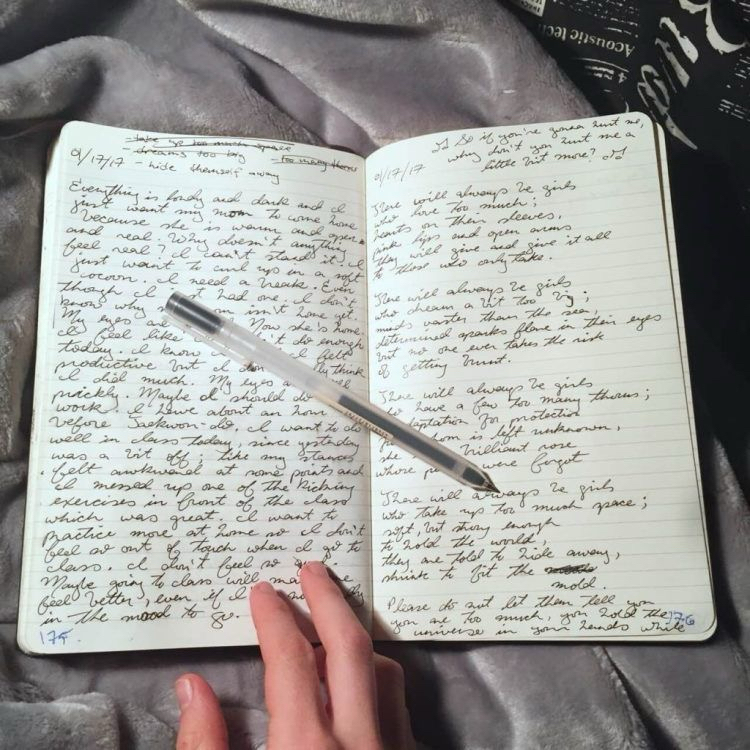 - take up too much space
- dreams too big
- too many thorns
01/17/17 - hide themself away
Everything is lonely and dark and I
just want my mom to come home
because she is warm and open
and real. Why doesn't anything
feel real? I can't stand it. I
just want to curl up in a soft
cocoon. I need a break. Even
though I just had one. I don't
know why mom isn't home yet.
My eyes are Now she's home.
I feel like I didn't do enough
today. I know I felt
productive but I don't really think
I did much. My eyes
prickly. Maybe I should do
work. I have about an hour
before Taekwon-do. I want to do
well in class today, since yesterday
was a bit off; like my stances
felt awkward at some points and
I messed up one of the kicking
exercises in front of the class
which was great. I want to
practice more at home so I don't
feel so out of touch when I go to
class. I don't feel so
Maybe going to class will make me
feel better, even if I'm not really
in the mood to go.
175
♫ So if you're gonna hurt me,
why don't you hurt me a
little bit more? ♫
01/17/17
There will always be girls
who love too much;
hearts on their sleeves,
pink lips and open arms
they will give and give it all
to those who only take.
There will always be girls
who dream a bit too big;
minds vaster than the sea,
determined sparks flare in their eyes
but no one ever takes the risk
of getting burnt.
There will always be girls
who have a few too many thorns;
adaptation for protection
from whom is left unknown,
the brilliant rose
whose were forgot
There will always be girls
who take up too much space;
soft, but strong enough
to hold the world,
they are told to hide away,
shrink to fit the
mold.
Please do not let them tell you
you are too much, you hold the
universe in your hands while
176
Acoustic tech